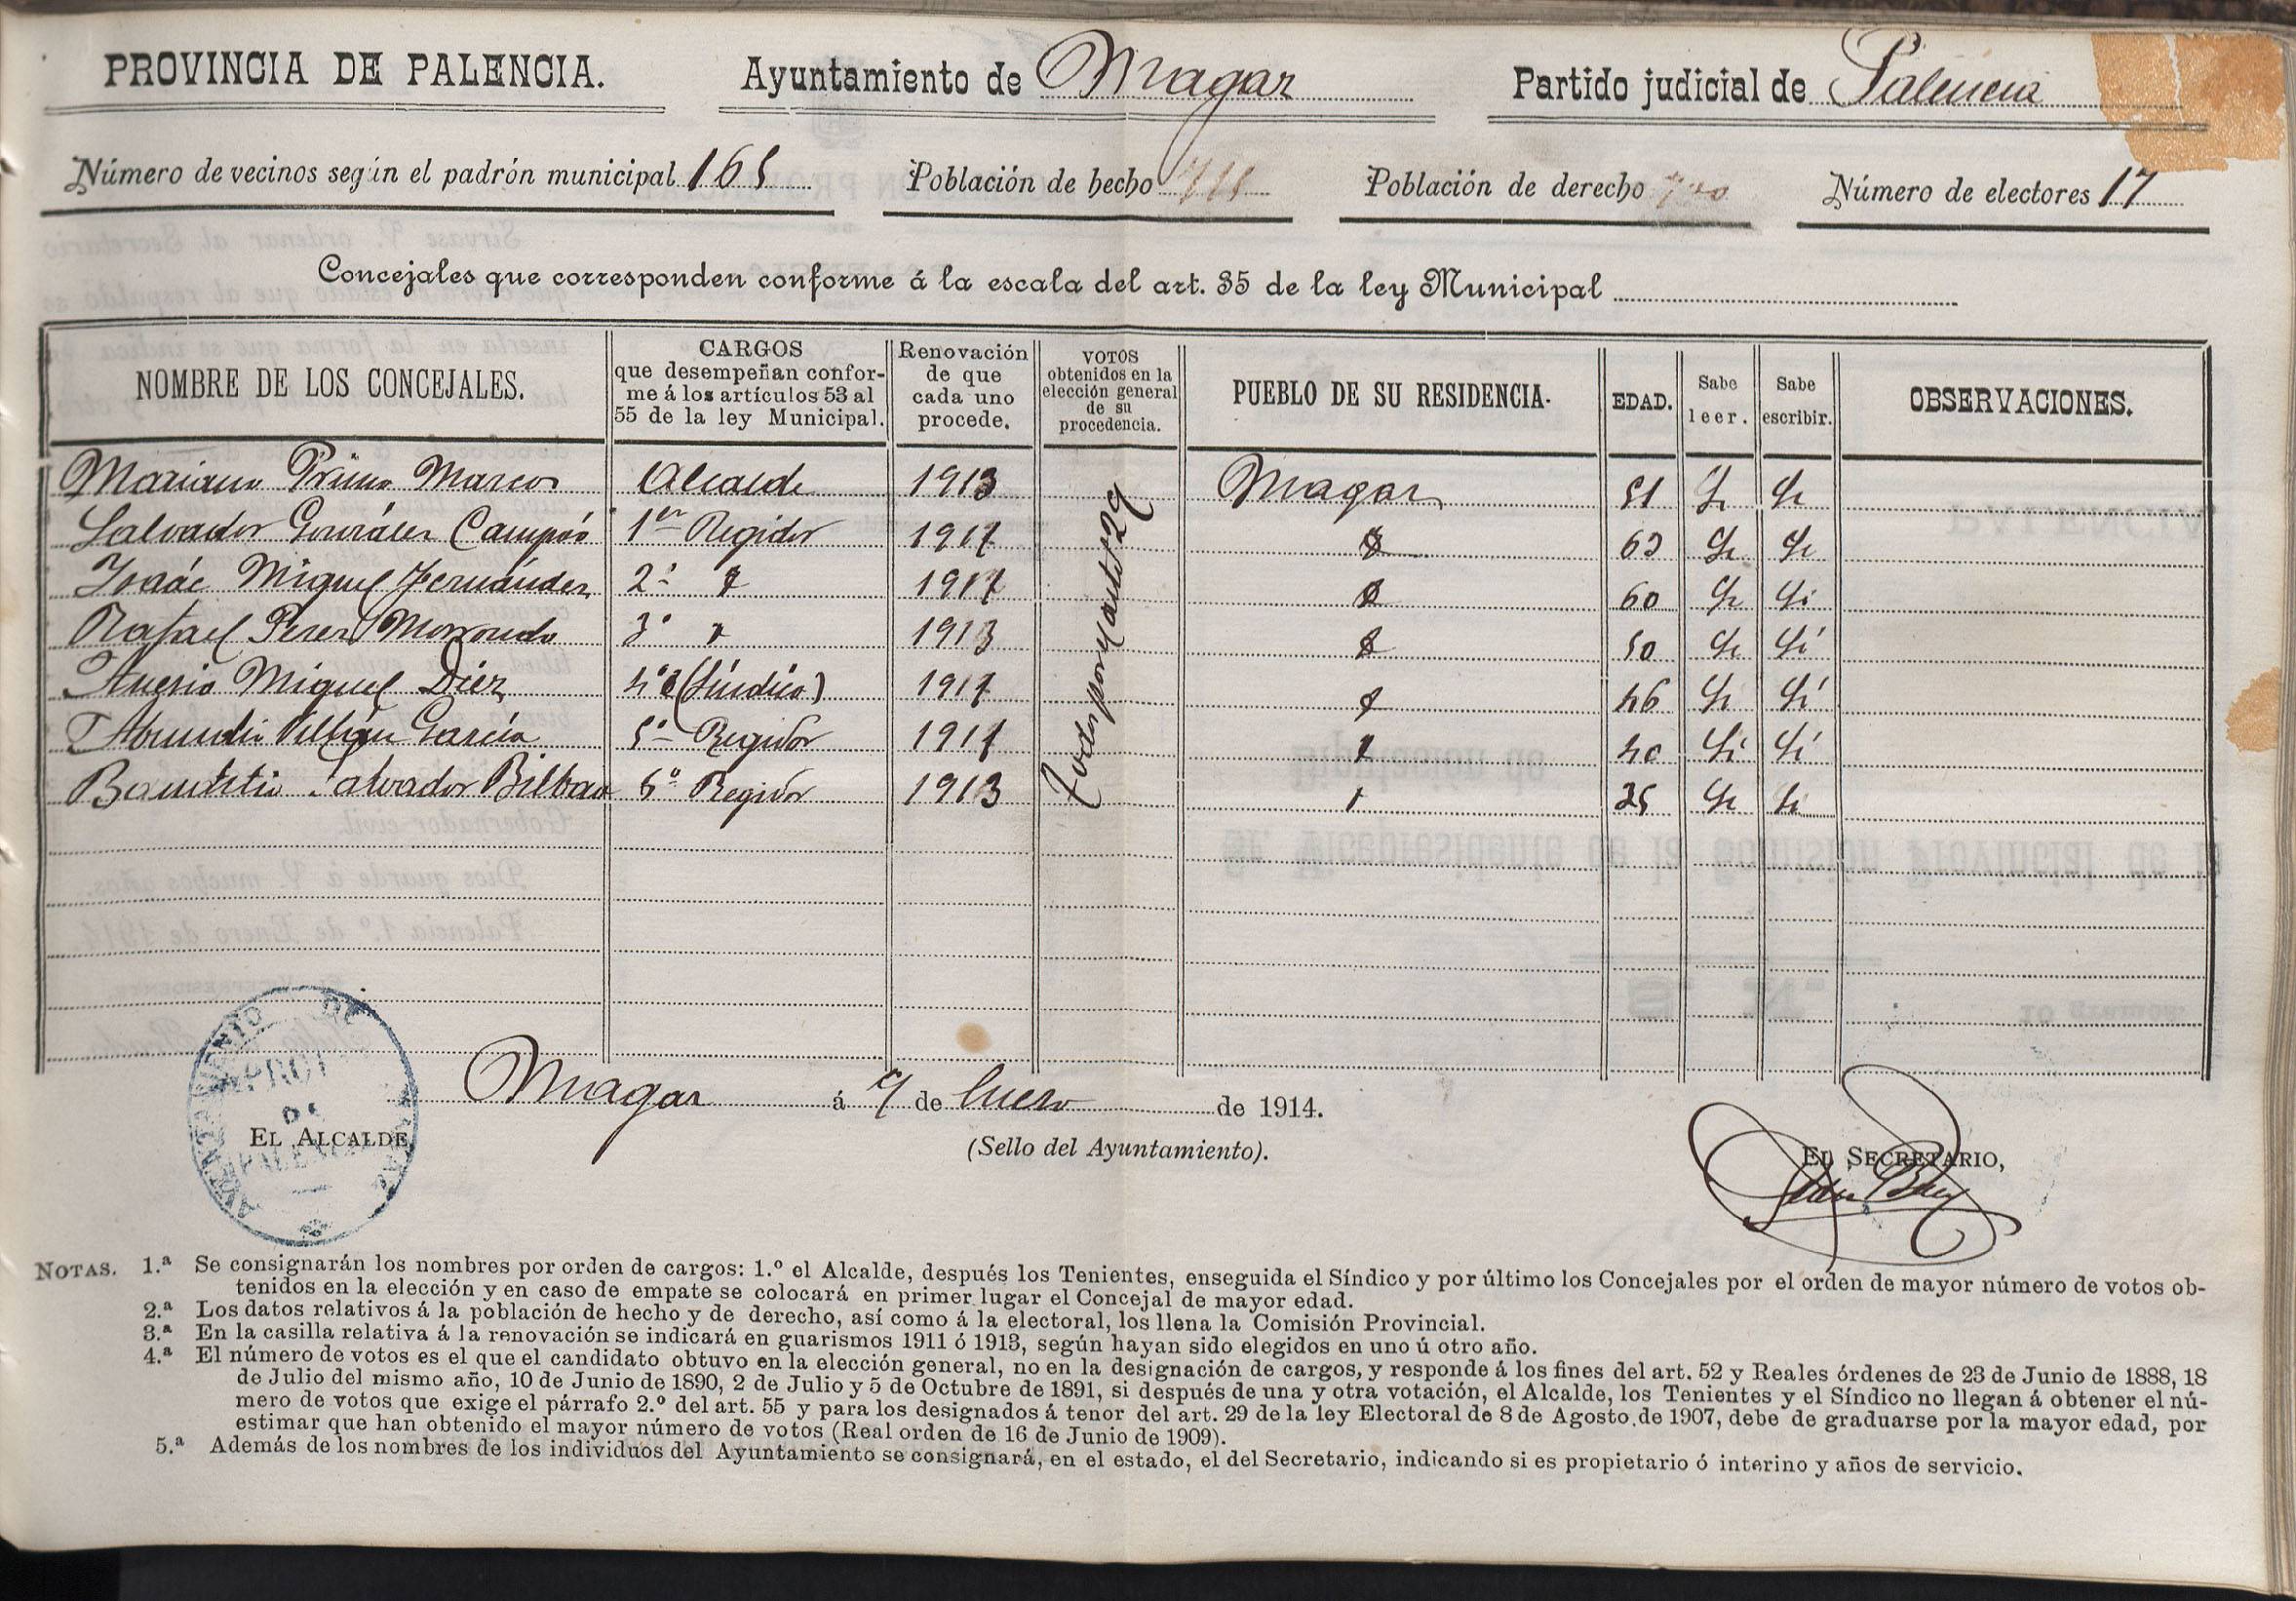 PROVINCIA DE PALENCIA. Ayuntamiento de Magaz Partido judicial de Palencia
Número de vecinos según el padrón municipal 165 Población de hecho 711 Población de derecho 700 Número de electores 17
Concejales que corresponden conforme á la escala del art. 35 de la ley Municipal
NOMBRE DE LOS CONCEJALES. CARGOS que desempeñan conforme á los artículos 53 al 55 de la ley Municipal. Renovación de que cada uno procede. VOTOS obtenidos en la elección general de su procedencia. PUEBLO DE SU RESIDENCIA. EDAD. Sabe leer. Sabe escribir. OBSERVACIONES.
Mariano Primo Marcos Alcalde 1913 Magaz 51 Si Si
Salvador González Campós 1er Regidor 1911 63 Si Si
Isaác Miguel Fernández 2º 1911 60 Si Si
Rafael Perez Morrondo 3º 1913 50 Si Sí
Miguel Diez 4º (Síndico) 1911 46 Si Sí
Abundio Villán García 5º Regidor 1911 40 Si Sí
Salvador Bilbao 6º Regidor 1913 25 Si Si
Todos por el artº 29
Magaz á 9 de Enero de 1914.
EL ALCALDE,
(Sello del Ayuntamiento).
EL SECRETARIO,
NOTAS. 1.ª Se consignarán los nombres por orden de cargos: 1.º el Alcalde, después los Tenientes, enseguida el Síndico y por último los Concejales por el orden de mayor número de votos ob-
tenidos en la elección y en caso de empate se colocará en primer lugar el Concejal de mayor edad.
2.ª Los datos relativos á la población de hecho y de derecho, así como á la electoral, los llena la Comisión Provincial.
3.ª En la casilla relativa á la renovación se indicará en guarismos 1911 ó 1913, según hayan sido elegidos en uno ú otro año.
4.ª El número de votos es el que el candidato obtuvo en la elección general, no en la designación de cargos, y responde á los fines del art. 52 y Reales órdenes de 23 de Junio de 1888, 18
de Julio del mismo año, 10 de Junio de 1890, 2 de Julio y 5 de Octubre de 1891, si después de una y otra votación, el Alcalde, los Tenientes y el Síndico no llegan á obtener el nú-
mero de votos que exige el párrafo 2.º del art. 55 y para los designados á tenor del art. 29 de la ley Electoral de 8 de Agosto de 1907, debe de graduarse por la mayor edad, por
estimar que han obtenido el mayor número de votos (Real orden de 16 de Junio de 1909).
5.ª Además de los nombres de los individuos del Ayuntamiento se consignará, en el estado, el del Secretario, indicando si es propietario ó interino y años de servicio.